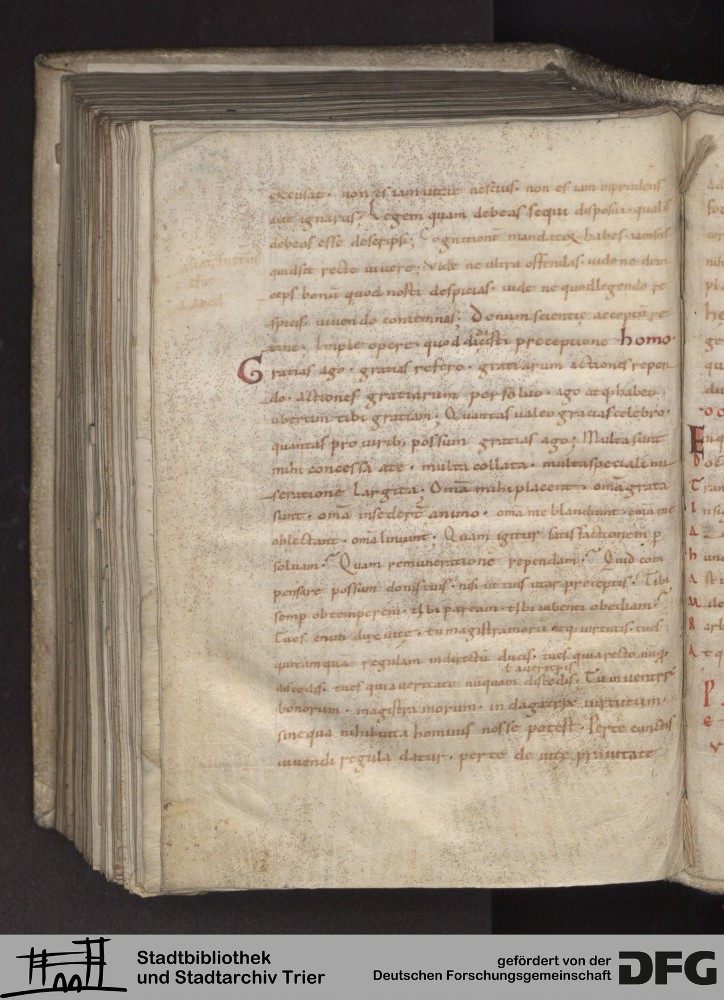 excusat · non es iam utique nescius · non es iam inprudens
aut ignarus; Legem quam debeas sequi disposui · qualis
debeas esse descripsi; Cognitionē mandatoꝝ habes · iam scis
quid sit recte uiuere; Vide ne ultra offendas · uide ne dein
ceps bonū quod nosti despicias · uide ne quod legendo re
spicis uiuendo contemnas; Donum scientie acceptū re
tine · Imple opere · quod didicisti preceptione homo·
Gratias ago · gratias refero · gratiarum actiones repen
do · actiones gratiarum persoluo · ago atq; habeo
uberem tibi gratiam; Quantas ualeo gracias celebro·
quantas pro uirib; possum gratias ago; Multa sunt
mihi concessa a te · multa collata · multa speciali mi
seratione largita; Omīa mihi placent · omīa grata
sunt · omīa insedert̄ animo · omīa me blandiunt · omīa me
oblectant · omīa liniunt · Quam igitur satisfactionem p
soluam? Quam remuneratione rependam? Quid com
pensare possum donis tuis · nisi ut tuis utar preceptis · Tibi
semp obtemperem · tibi paream · tibi iubenti obediam·
Tu es enim dux uite · tu magistra morū atq; uirtutis · tu es
que tamquā regulam indirectū ducis · tu es que a recto nūquā
t aueris
discedis · tu es que a ueritate nūquam discedis · Tu inuentrix
bonorum · magistra morum · indagatrix uirtutum·
sine qua nihil uita hominis nosse potest · Per te cunctis
uiuendi regula datur · per te de uite prauitate
Stadtbibliothek
und Stadtarchiv Trier
gefördert von der
Deutschen Forschungsgemeinschaft
DFG